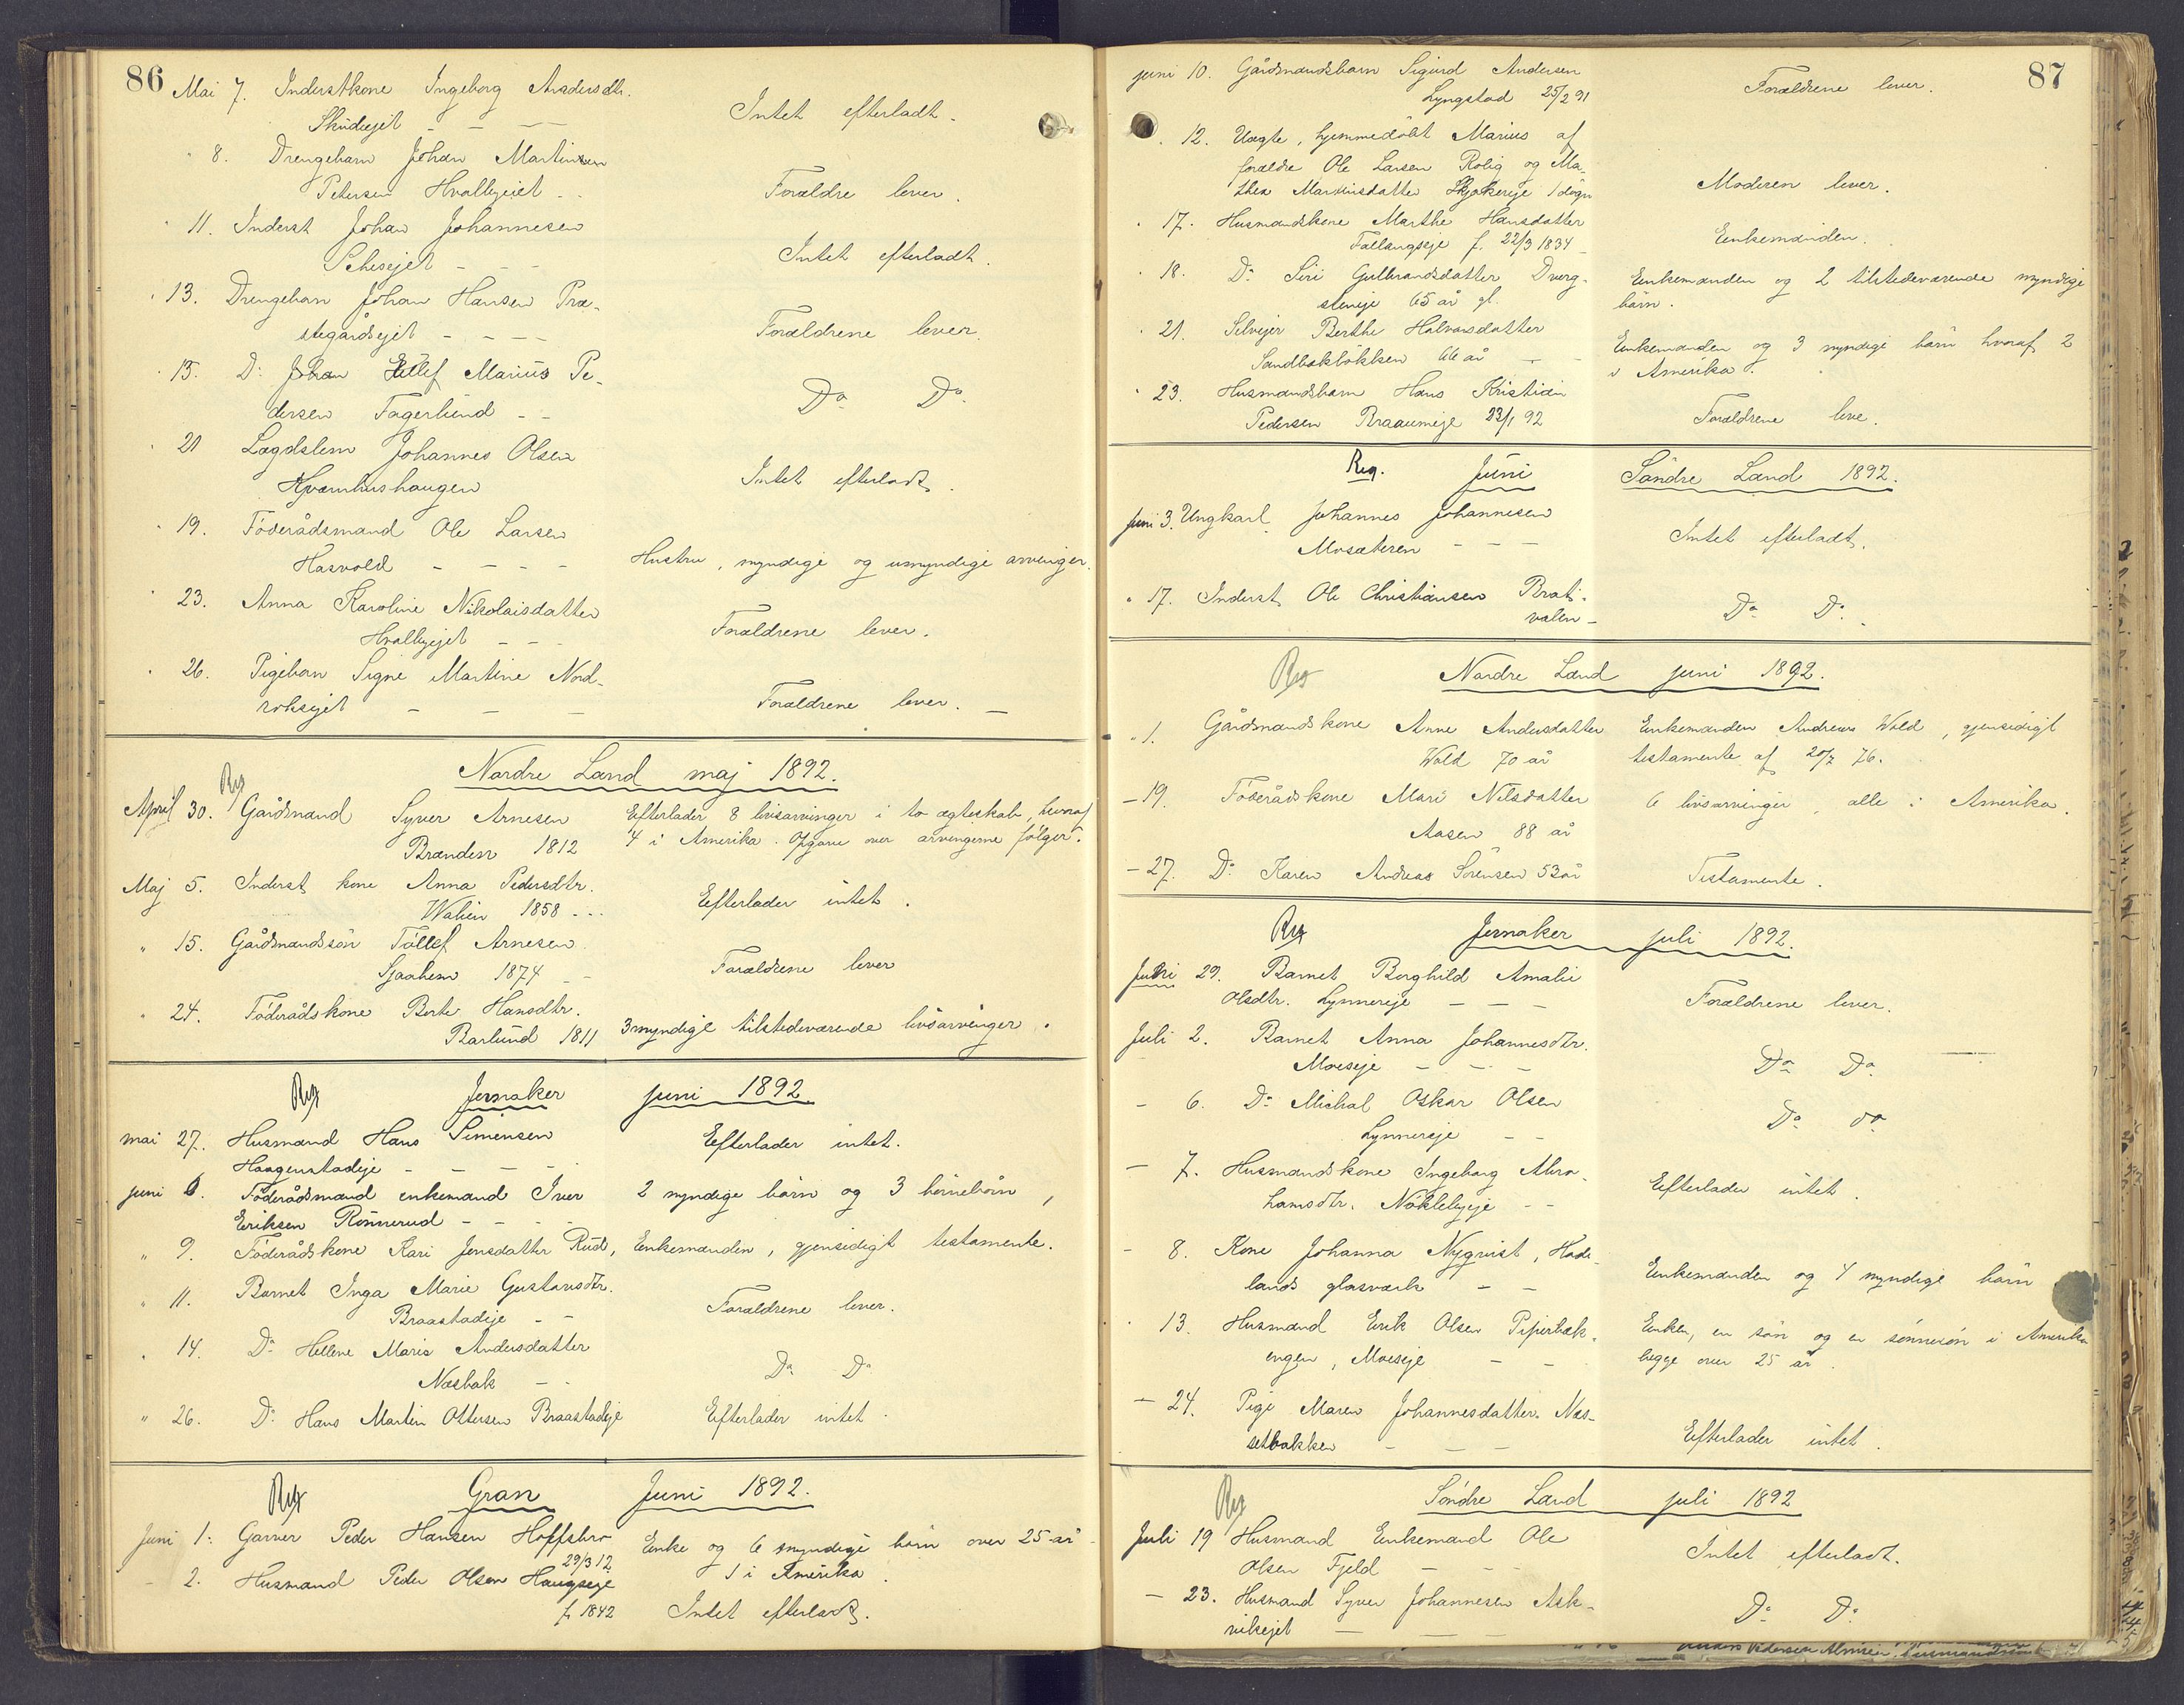 86
Mai 7. Inderstkone Ingeborg Andersdtr.
Skudiejet - - - Intet efterladt.
" 8. Drengebarn Johan Martinsen
Petersen Hvalbyeiet - - Forældre lever.
" 11. Inderst Johan Johannesen
- - - Intet efterladt.
" 13. Drengebarn Johan Hansen Præ-
stegårdsejet - - - - Forældrene lever.
" 15. Do Johan Marius Pe-
dersen Fagerlund - - Do Do
" 21 Lægdslem Johannes Olsen
Kværnhushaugen Intet efterladt.
" 19. Föderådsmand Ole Larsen
Hasvold - - - - Hustru, myndige og umyndige arvinger.
" 23. Anna Karoline Nikolaisdatter
Hvalbyejet - - - Forældrene lever.
" 26. Pigebarn Signe Martine Nord-
roksejet - - - Forældrene lever. -
Reg
Nordre Land maj 1892.
April 30. Gårdmand Syver Arnesen Efterlader 8 livsarvinger i to ægteskab, hvoraf
Brænden 1812 4 i Amerika. Opgave over arvingerne følger.
Maj 5. Inderst kone Anna Pedersdtr.
1858 - - - Efterlader intet.
" 15. Gårdmandssön Töllef Arnesen
Sjaaheim 1874 - Forældrene lever
" 24. Föderådskone Berte Hansdtr.
Barlund 1811 3 myndige tilstedeværende livsarvinger.
Reg Jevnaker juni 1892
mai 27. Husmand Hans Simensen Efterlader intet.
Haagenstadeje - - - -
juni 6. Föderådsmand enkemand Iver 2 myndige börn og 3 börnebörn,
Eriksen Rönnerud - - - -
" 9. Föderådskone Kari Jensdatter Rud, Enkemanden, gjensidigt testamente.
" 11. Barnet Inga Marie Gustavsdtr.
Braastadeje - - Forældrene lever.
" 14. Do Hellene Maria Andersdatter
Næsbak - - Do Do
" 26. Do Hans Martin Ottersen Braastadeje Efterlader intet.
Reg Gran Juni 1892.
Juni 1. Garver Peder Hansen Hoffsbro Enke og 6 myndige börn over 25 år
29/3 12 1 i Amerika.
- 2. Husmand Peder Olsen Haugseje
f. 1842 Intet efterladt.
87
juni 10. Gårdmandsbarn Sigurd Andersen
Lyngstad 25/2 91 Forældrene lever.
" 12. Uægte, hjemmedöbt Marius af
forældre Ole Larsen Rolig og Ma-
thea Martinsdatter 1 dögn Moderen lever.
" 17. Husmandskone Marthe Hansdatter
Fallangseje f. 22/3 1834 - Enkemanden.
" 18. Do Siri Gulbrandsdatter Dverg- Enkemanden og 2 tilstedeværende myndige
steneje 65 år gl. börn.
" 21. Selvejer Berthe Halvorsdatter
Sandbakløkken 66 år - - Enkemanden og 3 myndige börn hvoraf 2
i Amerika.
" 23. Husmandsbarn Hans Kristian
Pedersen 23/1 92 Forældrene leve.
Reg. Juni Söndre Land 1892.
Juni 3. Ungkarl Johannes Johannesen
Mosæteren - - - Intet efterladt.
" 17. Inderst Ole Christiansen Brati-
valen - Do Do
Reg Nordre Land juni 1892.
" 1. Gårdmandskone Anne Andersdatter Enkemanden Andreas Wold, gjensidigt
Wold 70 år testamente af 20/7 76.
- 19. Föderådskone Mari Nilsdatter 6 livsarvinger, alle i Amerika.
Aasen 88 år
- 27. Do Karen Andreas Sörensen 53 år Testamente.
Reg Jevnaker juli 1892.
Juni 29. Barnet Borghild Amalie
Olsdtr. Lynnereje - - - Forældrene lever.
Juli 2. Barnet Anna Johannesdtr.
Moeseje - - - Do Do
- 6. Do Michal Oskar Olsen
Lynnereje - - Do do
- 7. Husmandskone Ingeborg Abra-
hamsdtr. Nöklebyeje - - Efterlader intet.
- 8. Kone Johanna Nyqvist, Hade-
lands glasværk - - Enkemanden og 4 myndige börn
" 13. Husmand Erik Olsen Piperbæk- Enken, en sön og en sönnesön i Amerika
engen, Moeseje - - begge over 25 år.
- 24. Pige Maren Johannesdatter Næs-
setbakken - - - Efterlader intet.
Reg Söndre Land juli 1892
Juli 19 Husmand Enkemand Ole
Olsen Fjeld - - - Intet efterladt.
- 23. Husmand Syver Johannesen Ask-
vikejet - - - Do Do